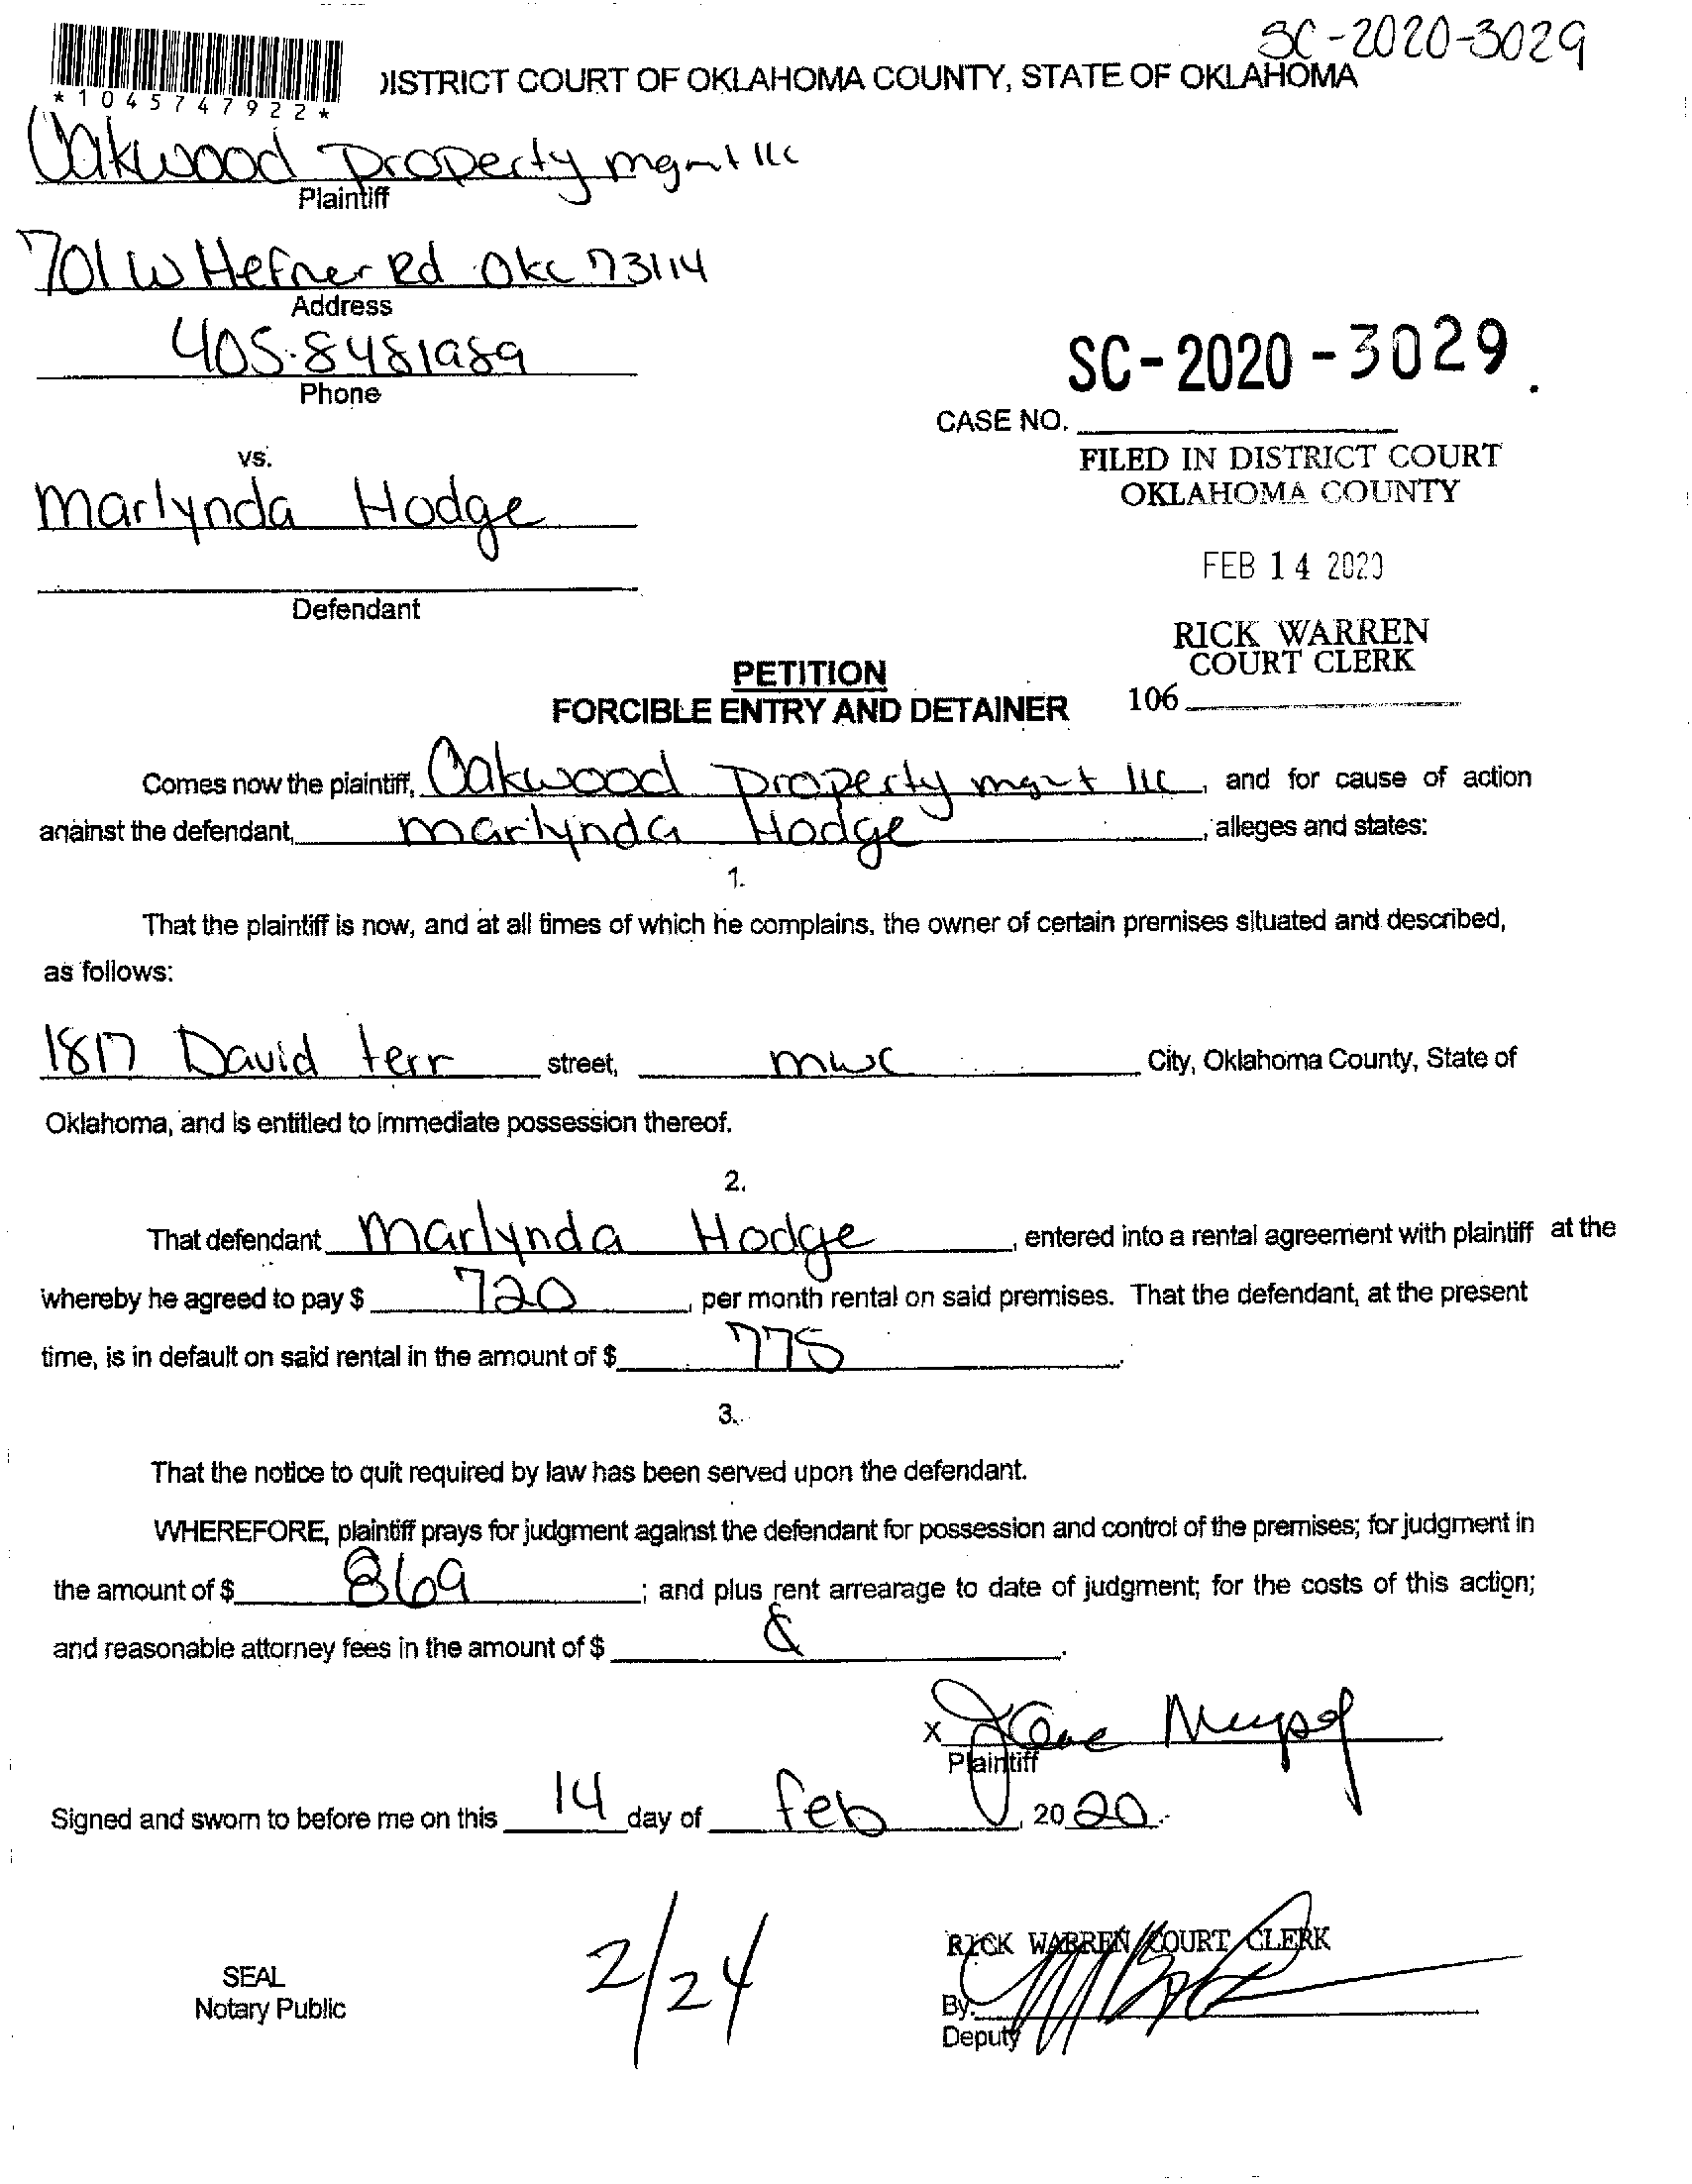 SC-2020-3029
*1045747922*
DISTRICT COURT OF OKLAHOMA COUNTY, STATE OF OKLAHOMA
Oakwood Property mgmt llc
Plaintiff
701 W Hefner Rd Okc 73114
Address
405.8481989
Phone
SC-2020-3029.
CASE NO.
FILED IN DISTRICT COURT
OKLAHOMA COUNTY
vs.
Marlynda Hodge
FEB 14 2020
Defendant
RICK WARREN
COURT CLERK
106
PETITION
FORCIBLE ENTRY AND DETAINER
Comes now the plaintiff, Oakwood Property mgmt llc, and for cause of action
against the defendant, Marlynda Hodge, alleges and states:
1.
That the plaintiff is now, and at all times of which he complains, the owner of certain premises situated and described,
as follows:
1817 David terr street, mwc City, Oklahoma County, State of
Oklahoma, and is entitled to immediate possession thereof.
2.
That defendant Marlynda Hodge, entered into a rental agreement with plaintiff at the
whereby he agreed to pay $ 720, per month rental on said premises. That the defendant, at the present
time, is in default on said rental in the amount of $ 775.
3.
That the notice to quit required by law has been served upon the defendant.
WHEREFORE, plaintiff prays for judgment against the defendant for possession and control of the premises; for judgment in
the amount of $ 869; and plus rent arrearage to date of judgment; for the costs of this action;
and reasonable attorney fees in the amount of $ .
X
Plaintiff
Signed and sworn to before me on this 14 day of Feb, 2020.
2/24
RICK WARREN COURT CLERK
SEAL
Notary Public
By:
Deputy